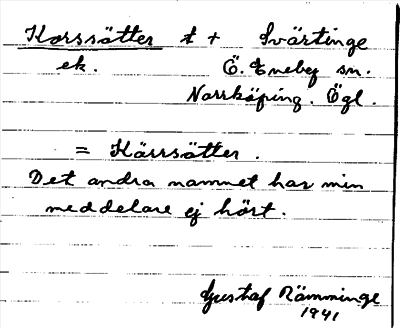 Korssätter t + Svärtinge
ek. Ö. Eneby sn.
Norrköping. Ögl.
= Kärrsätter.
Det andra namnet har min
meddelare ej hört.
Gustaf Rämminge
1941